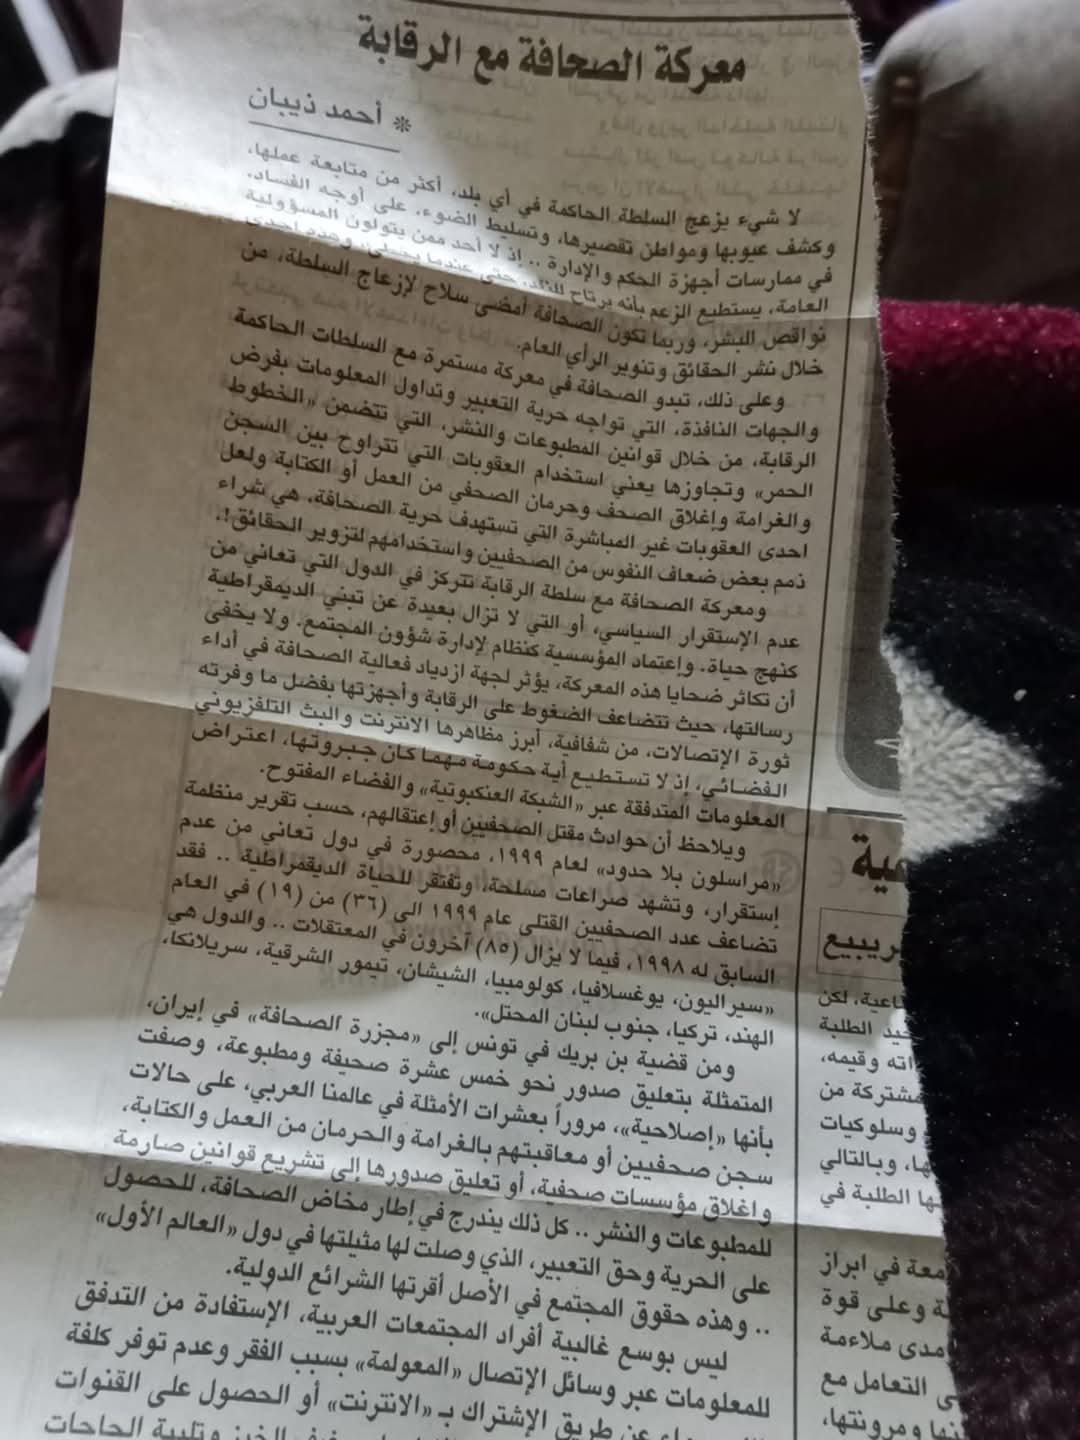 معركة الصحافة مع الرقابة
* أحمد ذيبان
لا شيء يزعج السلطة الحاكمة في أي بلد، أكثر من متابعة عملها،
وكشف عيوبها ومواطن تقصيرها، وتسليط الضوء، على أوجه الفساد،
في ممارسات أجهزة الحكم والإدارة .. إذ لا أحد ممن يتولون المسؤولية
العامة، يستطيع الزعم بأنه يرتاح للنقد، حتى عندما يخطئ، وهذه احدى
نواقص البشر، وربما تكون الصحافة أمضى سلاح لإزعاج السلطة، من
خلال نشر الحقائق وتنوير الرأي العام.
وعلى ذلك، تبدو الصحافة في معركة مستمرة مع السلطات الحاكمة
والجهات النافذة، التي تواجه حرية التعبير وتداول المعلومات بفرض
الرقابة، من خلال قوانين المطبوعات والنشر، التي تتضمن «الخطوط
الحمر» وتجاوزها يعني استخدام العقوبات التي تتراوح بين السجن
والغرامة وإغلاق الصحف وحرمان الصحفي من العمل أو الكتابة ولعل
احدى العقوبات غير المباشرة التي تستهدف حرية الصحافة، هي شراء
ذمم بعض ضعاف النفوس من الصحفيين واستخدامهم لتزوير الحقائق!.
ومعركة الصحافة مع سلطة الرقابة تتركز في الدول التي تعاني من
عدم الإستقرار السياسي، أو التي لا تزال بعيدة عن تبني الديمقراطية
كنهج حياة. وإعتماد المؤسسية كنظام لإدارة شؤون المجتمع. ولا يخفى
أن تكاثر ضحايا هذه المعركة، يؤثر لجهة ازدياد فعالية الصحافة في أداء
رسالتها، حيث تتضاعف الضغوط على الرقابة وأجهزتها بفضل ما وفرته
ثورة الإتصالات، من شفافية، أبرز مظاهرها الانترنت والبث التلفزيوني
الفضائي، إذ لا تستطيع أية حكومة مهما كان جبروتها، اعتراض
المعلومات المتدفقة عبر «الشبكة العنكبوتية» والفضاء المفتوح.
ويلاحظ أن حوادث مقتل الصحفيين أو إعتقالهم، حسب تقرير منظمة
«مراسلون بلا حدود» لعام ١٩٩٩، محصورة في دول تعاني من عدم
إستقرار، وتشهد صراعات مسلحة، وتفتقر للحياة الديمقراطية .. فقد
تضاعف عدد الصحفيين القتلى عام ١٩٩٩ الى (٣٦) من (١٩) في العام
السابق له ١٩٩٨، فيما لا يزال (٨٥) آخرون في المعتقلات .. والدول هي
«سيراليون، يوغسلافيا، كولومبيا، الشيشان، تيمور الشرقية، سريلانكا،
الهند، تركيا، جنوب لبنان المحتل».
ومن قضية بن بريك في تونس إلى «مجزرة الصحافة» في إيران،
المتمثلة بتعليق صدور نحو خمس عشرة صحيفة ومطبوعة، وصفت
بأنها «إصلاحية»، مروراً بعشرات الأمثلة في عالمنا العربي، على حالات
سجن صحفيين أو معاقبتهم بالغرامة والحرمان من العمل والكتابة،
واغلاق مؤسسات صحفية، أو تعليق صدورها إلى تشريع قوانين صارمة
للمطبوعات والنشر .. كل ذلك يندرج في إطار مخاض الصحافة، للحصول
على الحرية وحق التعبير، الذي وصلت لها مثيلتها في دول «العالم الأول»
.. وهذه حقوق المجتمع في الأصل أقرتها الشرائع الدولية.
ليس بوسع غالبية أفراد المجتمعات العربية، الإستفادة من التدفق
للمعلومات عبر وسائل الإتصال «المعولمة» بسبب الفقر وعدم توفر كلفة
عن طريق الإشتراك بـ «الانترنت» أو الحصول على القنوات
الخبز وتلبية الحاجات
مية
ريبيع
اعية، لكن
الطلبة
اته وقيمه،
مشتركة من
وسلوكيات
ها، وبالتالي
ها الطلبة في
معة في ابراز
ة وعلى قوة
مدى ملاءمة
ى التعامل مع
نها ومرونتها،